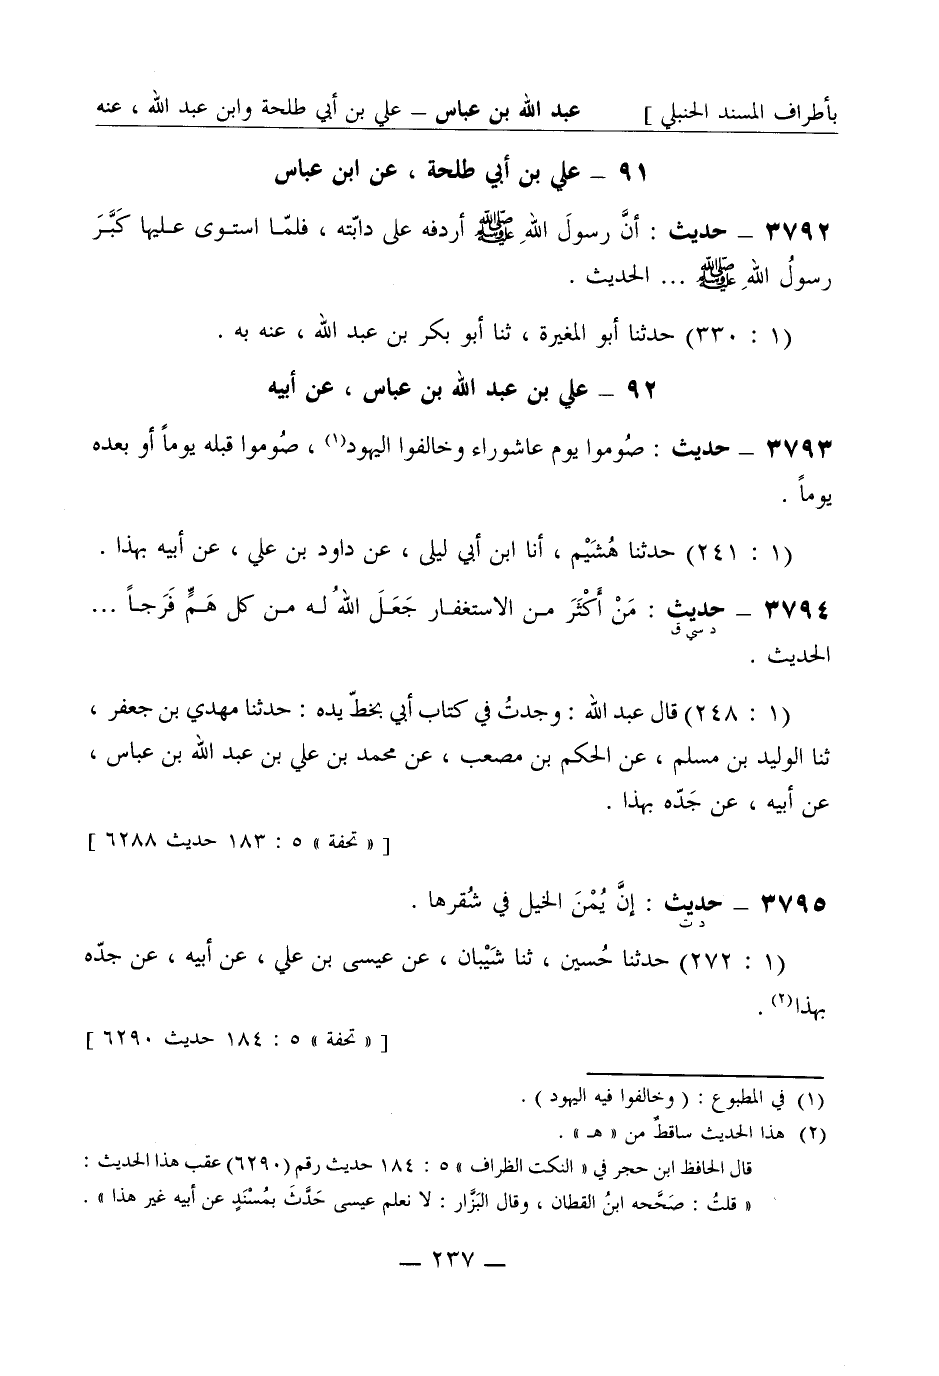 بأطراف المسند الحنبلي ] عبد الله بن عباس ــ علي بن أبي طلحة وابن عبد الله ، عنه
٩١ ــ علي بن أبي طلحة ، عن ابن عباس
٣٧٩٢ ــ حديث : أنَّ رسولَ اللهِ ﷺ أردفه على دابّته ، فلمّا استوى عليها كَبَّرَ
رسولُ اللهِ ﷺ ... الحديث .
(١ : ٣٣٠) حدثنا أبو المغيرة ، ثنا أبو بكر بن عبد الله ، عنه به .
٩٢ ــ علي بن عبد الله بن عباس ، عن أبيه
٣٧٩٣ ــ حديث : صُوموا يوم عاشوراء وخالفوا اليهود(١) ، صُوموا قبله يوماً أو بعده
يوماً .
(١ : ٢٤١) حدثنا هُشَيْم ، أنا ابن أبي ليلى ، عن داود بن علي ، عن أبيه بهذا .
٣٧٩٤ ــ حديث : مَنْ أَكْثَرَ من الاستغفار جَعَلَ اللهُ له من كل هَمٍّ فَرَجاً ...
د سي ق
الحديث .
(١ : ٢٤٨) قال عبد الله : وجدتُ في كتاب أبي بخطّ يده : حدثنا مهدي بن جعفر ،
ثنا الوليد بن مسلم ، عن الحكم بن مصعب ، عن محمد بن علي بن عبد الله بن عباس ،
عن أبيه ، عن جَدّه بهذا .
[ « تحفة » ٥ : ١٨٣ حديث ٦٢٨٨ ]
٣٧٩٥ ــ حديث : إنَّ يُمْنَ الخيل في شُقرها .
د ت
(١ : ٢٧٢) حدثنا حُسين ، ثنا شَيْبان ، عن عيسى بن علي ، عن أبيه ، عن جدّه
بهذا(٢) .
[ « تحفة » ٥ : ١٨٤ حديث ٦٢٩٠ ]
(١) في المطبوع : ( وخالفوا فيه اليهود ) .
(٢) هذا الحديث ساقطٌ من « هـ » .
قال الحافظ ابن حجر في « النكت الظراف » ٥ : ١٨٤ حديث رقم (٦٢٩٠) عقب هذا الحديث :
« قلتُ : صَحَّحه ابنُ القطان ، وقال البَزَّار : لا نعلم عيسى حَدَّثَ بمُسْنَدٍ عن أبيه غير هذا » .
ــ ٢٣٧ ــ